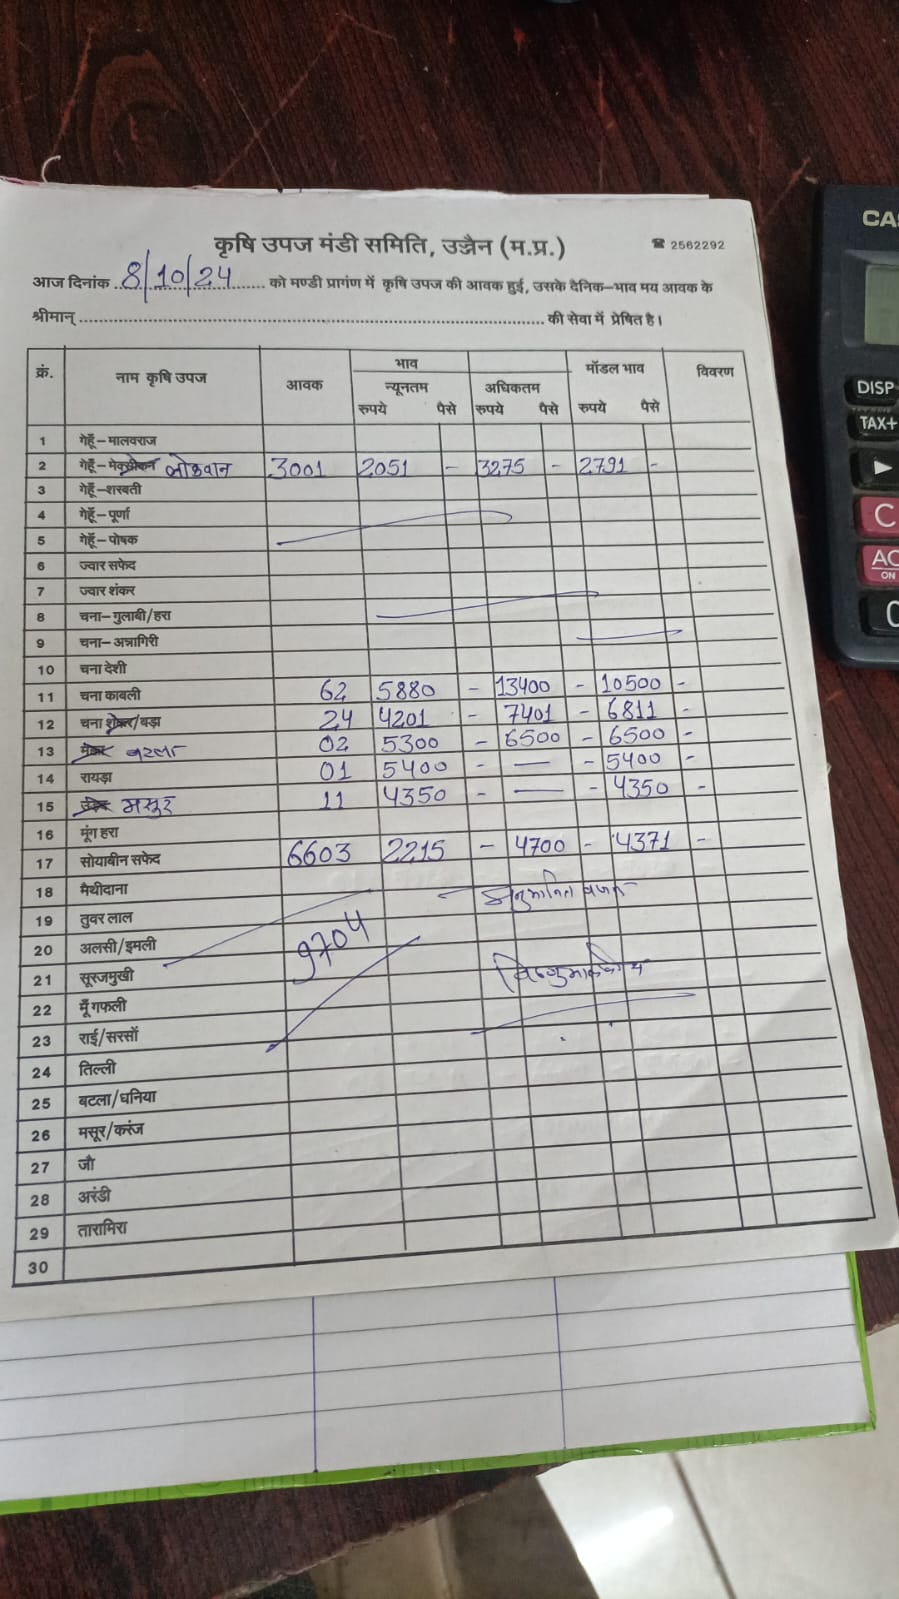 कृषि उपज मंडी समिति, उज्जैन (म.प्र.) ☎ 2562292
आज दिनांक 8/10/24 को मण्डी प्रागंण में कृषि उपज की आवक हुई, उसके दैनिक-भाव मय आवक के
श्रीमान् की सेवा में प्रेषित है।
क्रं. नाम कृषि उपज आवक भाव मॉडल भाव विवरण
न्यूनतम अधिकतम
रुपये पैसे रुपये पैसे रुपये पैसे
1 गेहूँ-मालवराज
2 गेहूँ-मेक्सीकन लोकवान 3001 2051 - 3275 - 2791 -
3 गेहूँ-शरबती
4 गेहूँ-पूर्णा
5 गेहूँ-पोषक
6 ज्वार सफेद
7 ज्वार शंकर
8 चना-गुलाबी/हरा
9 चना-अन्नागिरी
10 चना देशी
11 चना काबली 62 5880 - 13400 - 10500 -
12 चना /बड़ा 24 4201 - 7401 - 6811 -
13 बटला 02 5300 - 6500 - 6500 -
14 रायड़ा 01 5400 - — - 5400 -
15 मसूर 11 4350 - — - 4350 -
16 मूंग हरा
17 सोयाबीन सफेद 6603 2215 - 4700 - 4371 -
18 मैथीदाना अनुमानित वजन
19 तुवर लाल
20 अलसी/इमली 9704
21 सूरजमुखी
22 मूँगफली
23 राई/सरसों
24 तिल्ली
25 बटला/धनिया
26 मसूर/करंज
27 जौ
28 अरंडी
29 तारामिरा
30
CAS
DISP
TAX+
C
AC
ON